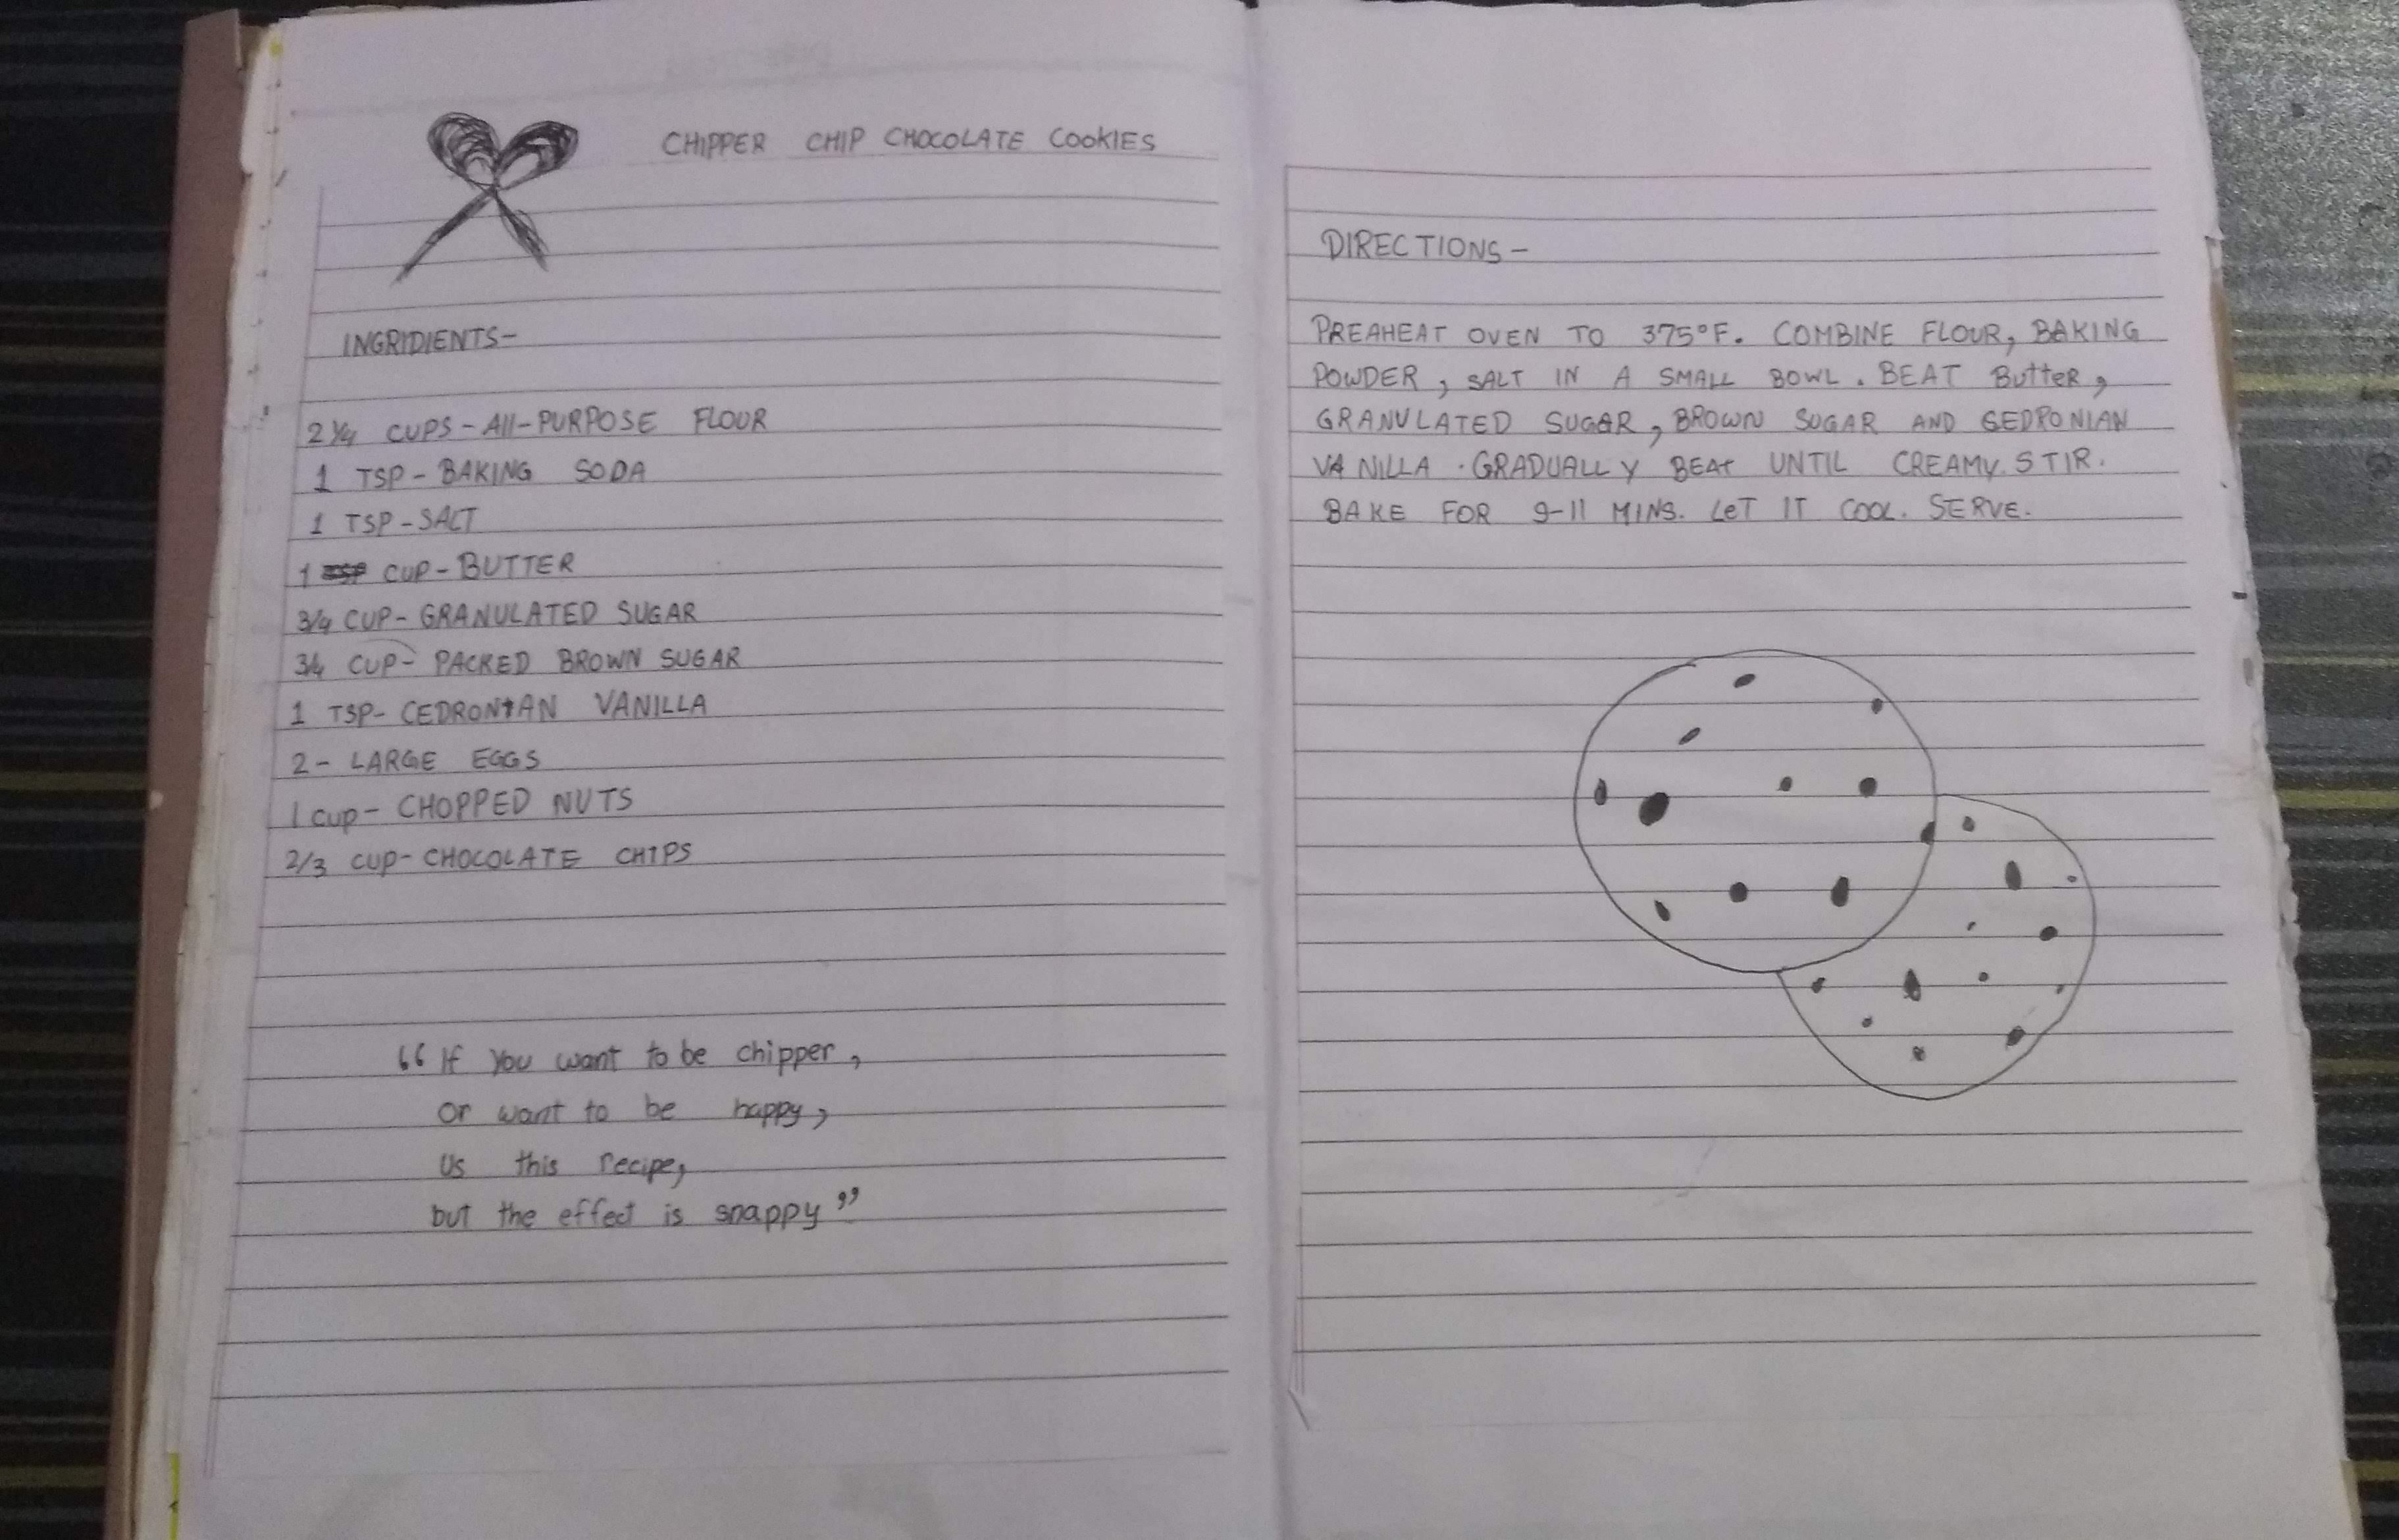 CHIPPER CHIP CHOCOLATE COOKIES
INGRIDIENTS-
2 1/4 CUPS - All-PURPOSE FLOUR
1 TSP - BAKING SODA
1 TSP - SALT
1 CUP - BUTTER
3/4 CUP - GRANULATED SUGAR
3/4 CUP - PACKED BROWN SUGAR
1 TSP - CEDRONIAN VANILLA
2 - LARGE EGGS
1 cup - CHOPPED NUTS
2/3 CUP - CHOCOLATE CHIPS
“If you want to be chipper,
or want to be happy,
Us this recipe,
but the effect is snappy”
DIRECTIONS -
PREAHEAT OVEN TO 375°F. COMBINE FLOUR, BAKING
POWDER, SALT IN A SMALL BOWL. BEAT ButteR,
GRANULATED SUGAR, BROWN SUGAR AND
VANILLA. GRADUALLY BEAt UNTIL CREAMY. STIR.
BAKE FOR 9-11 MINS. LeT IT COOL. SERVE.